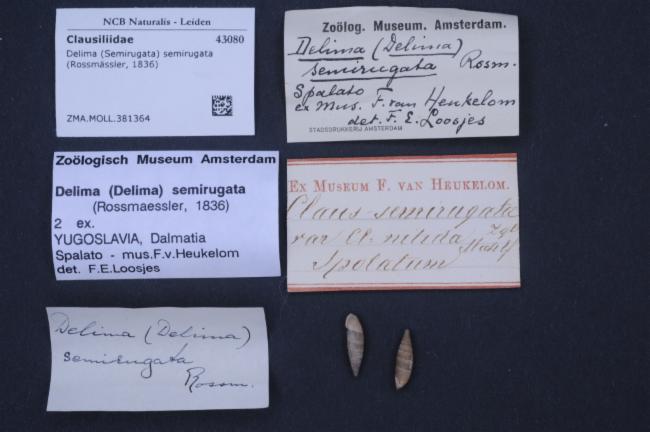 NCB Naturalis - Leiden
Clausiliidae 43080
Delima (Semirugata) semirugata
(Rossmässler, 1836)
ZMA.MOLL.381364
Zoölog. Museum. Amsterdam.
Delima (Delima)
semirugata Rosm.
Spalato
ex Mus. F. van Heukelom
det. F. E. Loosjes
STADSDRUKKERIJ AMSTERDAM
Zoölogisch Museum Amsterdam
Delima (Delima) semirugata
(Rossmaessler, 1836)
2 ex.
YUGOSLAVIA, Dalmatia
Spalato - mus.F.v.Heukelom
det. F.E.Loosjes
Ex Museum F. van Heukelom.
Claus. semirugata
var Cl. nitida Zgl
Spolatum
Delima (Delima)
semirugata
Rossm.